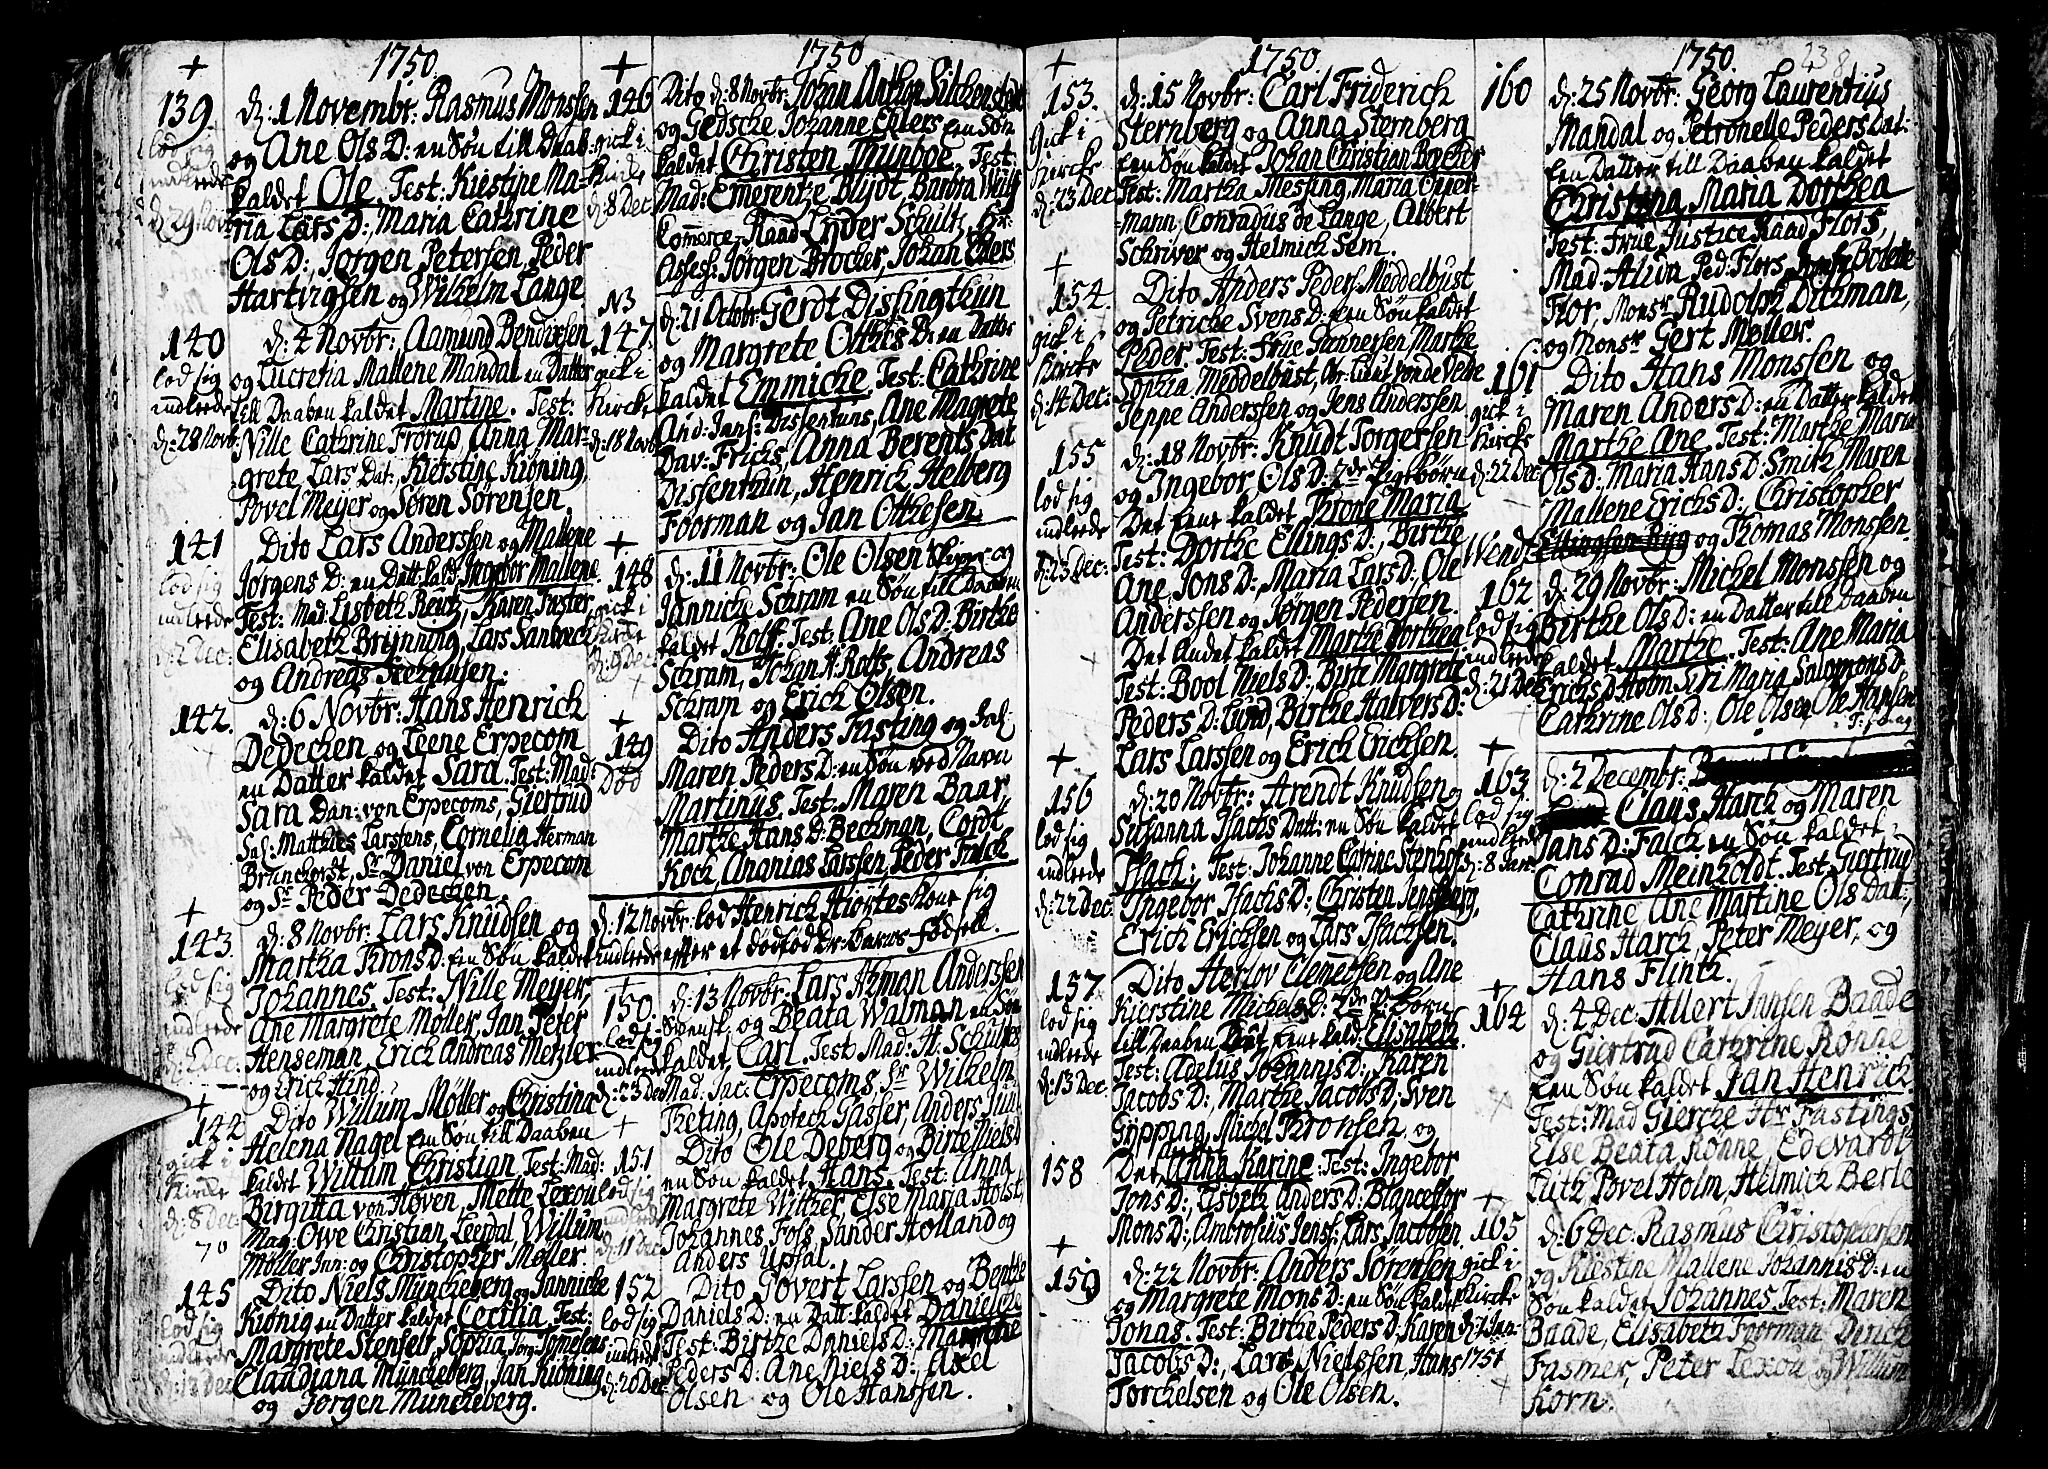 1750.
139.
d: 1 Novembr: Rasmus Monssen
og Ane Ols D: en Søn till Daab
kaldet Ole. Test: Kiestine Ma-
ria Lars D:, Maria Cathrine
Ols D:, Jørgen Petersen, Peder
Hartvigsen og Wilhelm Lange
lod sig
indlede
d: 29 Novbr
140
d: 4 Novbr: Aamund Bendixsen
og Lucretia Mallene Mandal en Datter
till Daaben kaldet Martine. Test:
Nille Cathrine Frorup, Anna Mar-
grete Lars Dat:, Kierstine Kröning,
Povel Meyer og Søren Sørensen.
lod sig
indlede
d: 28 Novbr
141
Dito Lars Anderssen og Mallene
Jørgens D: en Datt: kald: Ingebor Mallene.
Test: Mad: Lisbeth Reutz, Karen Faster
Elisabeth Brynning, Lars Sandvech
og Andreas
lod sig
indlede
d: 2 Dec:
142.
d: 6 Novbr: Hans Henrich
Dedechen og Leene Erpecom
en Datter kaldet Sara. Test: Mad:
Sara Dan: von Erpecoms, Giertrud
Sal: Matthies Carstens, Cornelia Herman
Brunchorst, Sr Daniel von Erpecom
og Sr Peder Dedechen
143.
d: 8 Novbr: Lars Knudsen og
Martha Krons D: en Søn kaldet
Johannes. Test: Nille Meyer,
Ane Margrete Møller, Jan Peter
Henseman, Erich Andreas Metzler
og Erich Hind.
lod sig
indlede
d: 2 Dec:
144
Dito Willum Møller og Christina
Helena Nagel en Søn till Daaben
kaldet Willum Christian. Test: Mad:
Birgitta von Hoven, Mette Lexou
Mag: Owe Christian Leerdal, Willum
Møller Jun: og Christopher Møller.
gick i
Kircke
d: 8 Dec:
70
145
Dito Niels Münckeberg og Jannicke
Krönig en Datter kaldet Cecilia. Test:
Margrete Stenfelt, Sophia Jørg: Tomesens
Claudiana Münckeberg, Jan Kröning
og Jørgen Münckeberg.
lod sig
indlede
d: 12 Dec
1750
146
Dito d: 8 Novbr: Johan Anthon
og Gedsche Johanne Ehlers en Søn
kaldet Christen Munboe. Test:
Mad: Emerentze Blydt, Barbra
Kommerce-Raad Lyder Schultz, Hr:
Assess: Jørgen Brocker, Johan Ehlers
gick i
Kircke
d: 8 Dec
N3
147.
d: 21 Octobr: Gerdt Dissingthun
og Margrete Otthes D: en Datter
kaldet Emmiche. Test: Cathrine
And: Jans: Dissentuns, Ane Magrete
Dav: Frichs, Anna Berents Dat
Dissenthun, Henrich Helberg
Foorman og Jan Otthesen.
gick i
Kircke
d: 18 Novb
148
d: 11 Novbr: Ole Olsen Skipper og
Jannicke Schram en Søn till Daaben
kaldet Rolf. Test: Ane Ols D: Birthe
Schram, Johan H: Rolfs, Andreas
Schram og Erich Olsen.
gick i
Kircke
d: 9 Dec:
149
Dito Anders Fasting og Sal:
Maren Peders D: en Søn ved Navn
Martinus. Test: Maren Baar
Marthe Hans D: Beckman, Cordt
Koch, Ananias Larssen, Peder Falch
Død
d: 12 Novbr: lod Henrich Hiortes Kone sig
indlede effter et dødfød Dr: Barns fødsell.
150.
d: 13 Novbr: Lars Ahman Anderssen
Svensk og Beata Walman en Søn
kaldet Carl. Test: Mad: H. Schultes
Mad: Jac: Erpecoms, Sr Wilhelm
Kreting, Apoteck Gasser, Anders
lod sig
indlede
d: 23 Dec
151
Dito Ole Deberg og Birte Niels D
en Søn kaldet Hans. Test: Anna
Margrete Wither, Else Maria Holst,
Johannes Foss, Sander Holland og
Anders Upsal.
lod sig
indlede
d: 11 Dec
152
Dito Govert Larssen og Benthe
Daniels D: en Datt: kaldet Danielche
Test: Birthe Daniels D: Marethe
Peders D: Ane Niels D:, Axel
Olsen og Ole Hanssen.
lod sig
indlede
d: 20 Dec
1750
153.
d: 15 Novbr: Carl Friderich
Sternberg og Anna Sternberg
en Søn kaldet Johan Christian
Test: Martha Miesing, Maria Over-
mann, Conradus de Lange, Albert
Schriver og Helmich Sem.
Gick i
Kircke
d: 23 Dec
154.
Dito Anders Peders: Meddelbust
og Petriche Svens D: en Søn kaldet
Peder. Test: Frue Gunnersen, Marthe
Sophia Meddelbust,
Jeppe Anderssen og Jens Anderssen
gick i
Kircke
d: 14 Dec:
155
d: 18 Novbr: Knudt Torgersen
og Ingebor Ols D: 2de Pigebørn
Det eene kaldet Krone Maria.
Test: Dorthe Ellings D:, Birthe
Ane Jons D:, Maria Lars D:, Ole
Anderssen og Jørgen Pedersen.
Det Andet kaldet Marthe Dorthea
Test: Bool Niels D:, Birte Margrete
Peders D: Lund, Birthe Halvers D:
Lars Larssen og Erich Erichsen.
lod sig
indlede
d: 23 Dec:
156
d: 20 Novbr: Arendt Knudsen og
Susanna Isachs Datt: en Søn kaldet
Isach: Test: Johanne Catrine Stenhof
Ingebor Isachs D:, Christen Jens Berg,
Erich Erichsen og Lars Isachsen.
lod sig
indlede
d: 22 Dec:
157
Dito Herlov Clemetsen og Ane
Kierstine Michels D: 2de P: børn
till Daaben Det eene kald: Elisabeth.
Test: Adelus Johannis D:, Karen
Jacobs D:, Marthe Jacobs D: Sven
Gripping, Michel Kronssen og
lod sig
indlede
d: 13 Dec.
158
Det Anna Karine. Test: Ingebor
Jons D:, Lisbeth Anders D:, Blanceflor
Mons D:, Ambrosius Jens:, Lars Jacobsen.
159
d: 22 Novbr: Anders Sørensen
og Margrete Mons D: en Søn kaldet
Jonas. Test: Birthe Peders D: Karen
Jacobs D:, Lars Nielssen, Hans
Torchelsen og Ole Olsen.
gick i
Kircke
d: 1 Jan:
1751
1750.
238
160
d: 25 Novbr: Georg Laurentius
Mandal og Petronelle Peders Dat:
en Datter till Daaben kaldet
Christina Maria Dorthea
Test: Frue Justice Raad Flors,
Mad: Alida Ped: Flors, Bolette
Flor, Monsr Rudolph Dichman,
og Monsr Gert Møller.
161
Dito Hans Monssen og
Maren Anders D: en Datter kaldet
Marthe Ane. Test: Marthe Maria
Ols D: Maria Hans D: Smith Maren
Mallene Erichs D:, Christopher
Wendt og Thomas Monssen.
gick i
Kircke
d: 22 Dec:
162
d: 29 Novbr: Michel Monssen og
Birthe Ols D: en Datter till Daaben
kaldet Marthe. Test: Ane Maria
Erichs D Holm Siri Maria Salomons D:
Cathrine Ols D:, Ole Olsen Ole Hanssen
lod sig
indlede
d: 21 Dec
163
d: 2 Decembr:
Claus Harck og Maren
Jans D: Falck en Søn kaldet
Conrad Meinholdt. Test: Giertrud
Cathrine, Ane Martine Ols Datt:,
Claus Harck, Peter Meyer, og
Hans Flinth.
lod sig
indlede
d: 8 Jan:
164
d: 4 Dec: Allert Jansen Baade
og Giertrud Cathrine Rønne
en Søn kaldet Jan Henrich
Test: Mad Giercke Hr Fastings
Else Beata Rønne, Edevardt
Luth Povel Holm, Helmich Berle
165
d: 6 Dec: Rasmus Christophersen
og Kiestine Mallene Johannis D: en
Søn kaldet Johannes Test: Maren
Baade, Elisabeth Foorman Dirich
Fasmer, Peter Lexou og Willum
Korn.